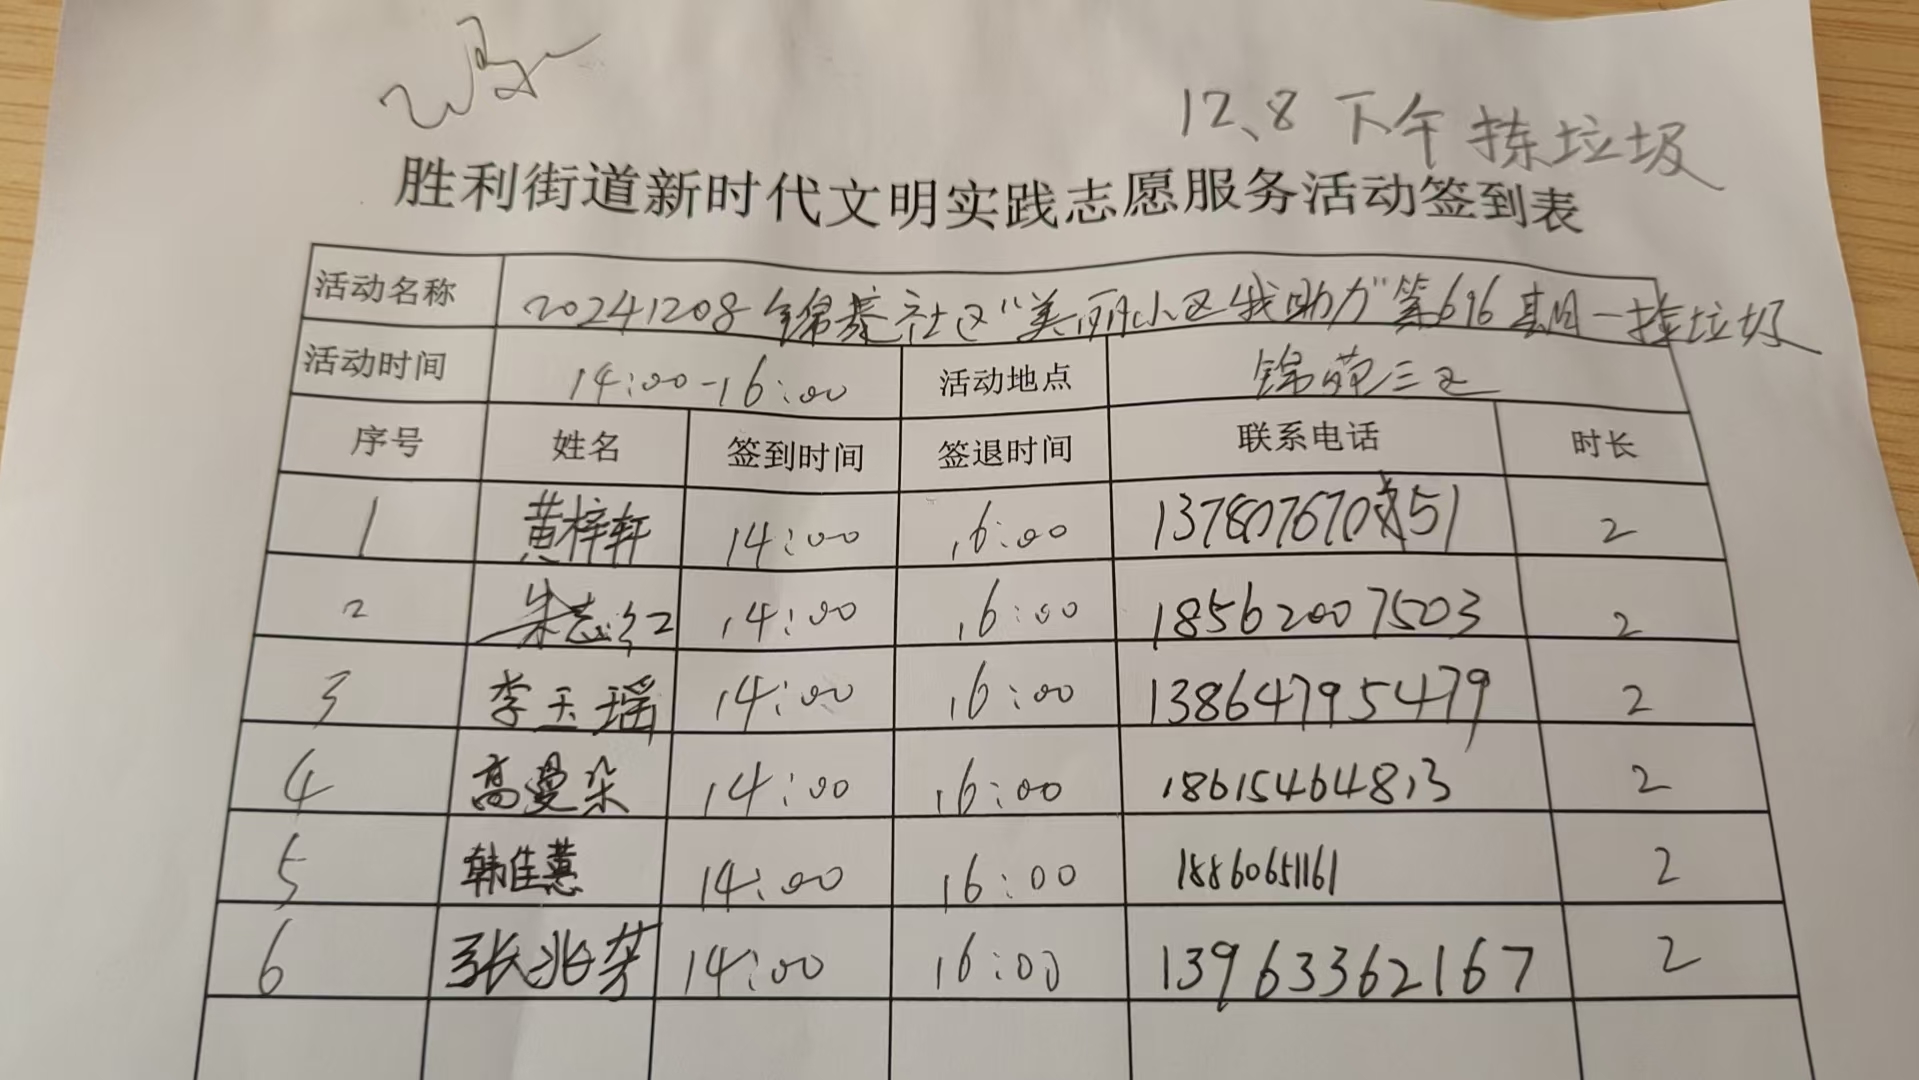 12、8 下午 拣垃圾
胜利街道新时代文明实践志愿服务活动签到表
活动名称 20241208锦泰社区“美丽小区我助力”第696期—捡垃圾
活动时间 14:00-16:00 活动地点 锦苑三区
序号 姓名 签到时间 签退时间 联系电话 时长
1 黄梓轩 14:00 16:00 13780767051 2
2 朱志红 14:00 16:00 18562007503 2
3 李玉瑶 14:00 16:00 13864795479 2
4 高曼朵 14:00 16:00 18615464813 2
5 韩佳慧 14:00 16:00 18860651161 2
6 张兆芳 14:00 16:00 13963362167 2